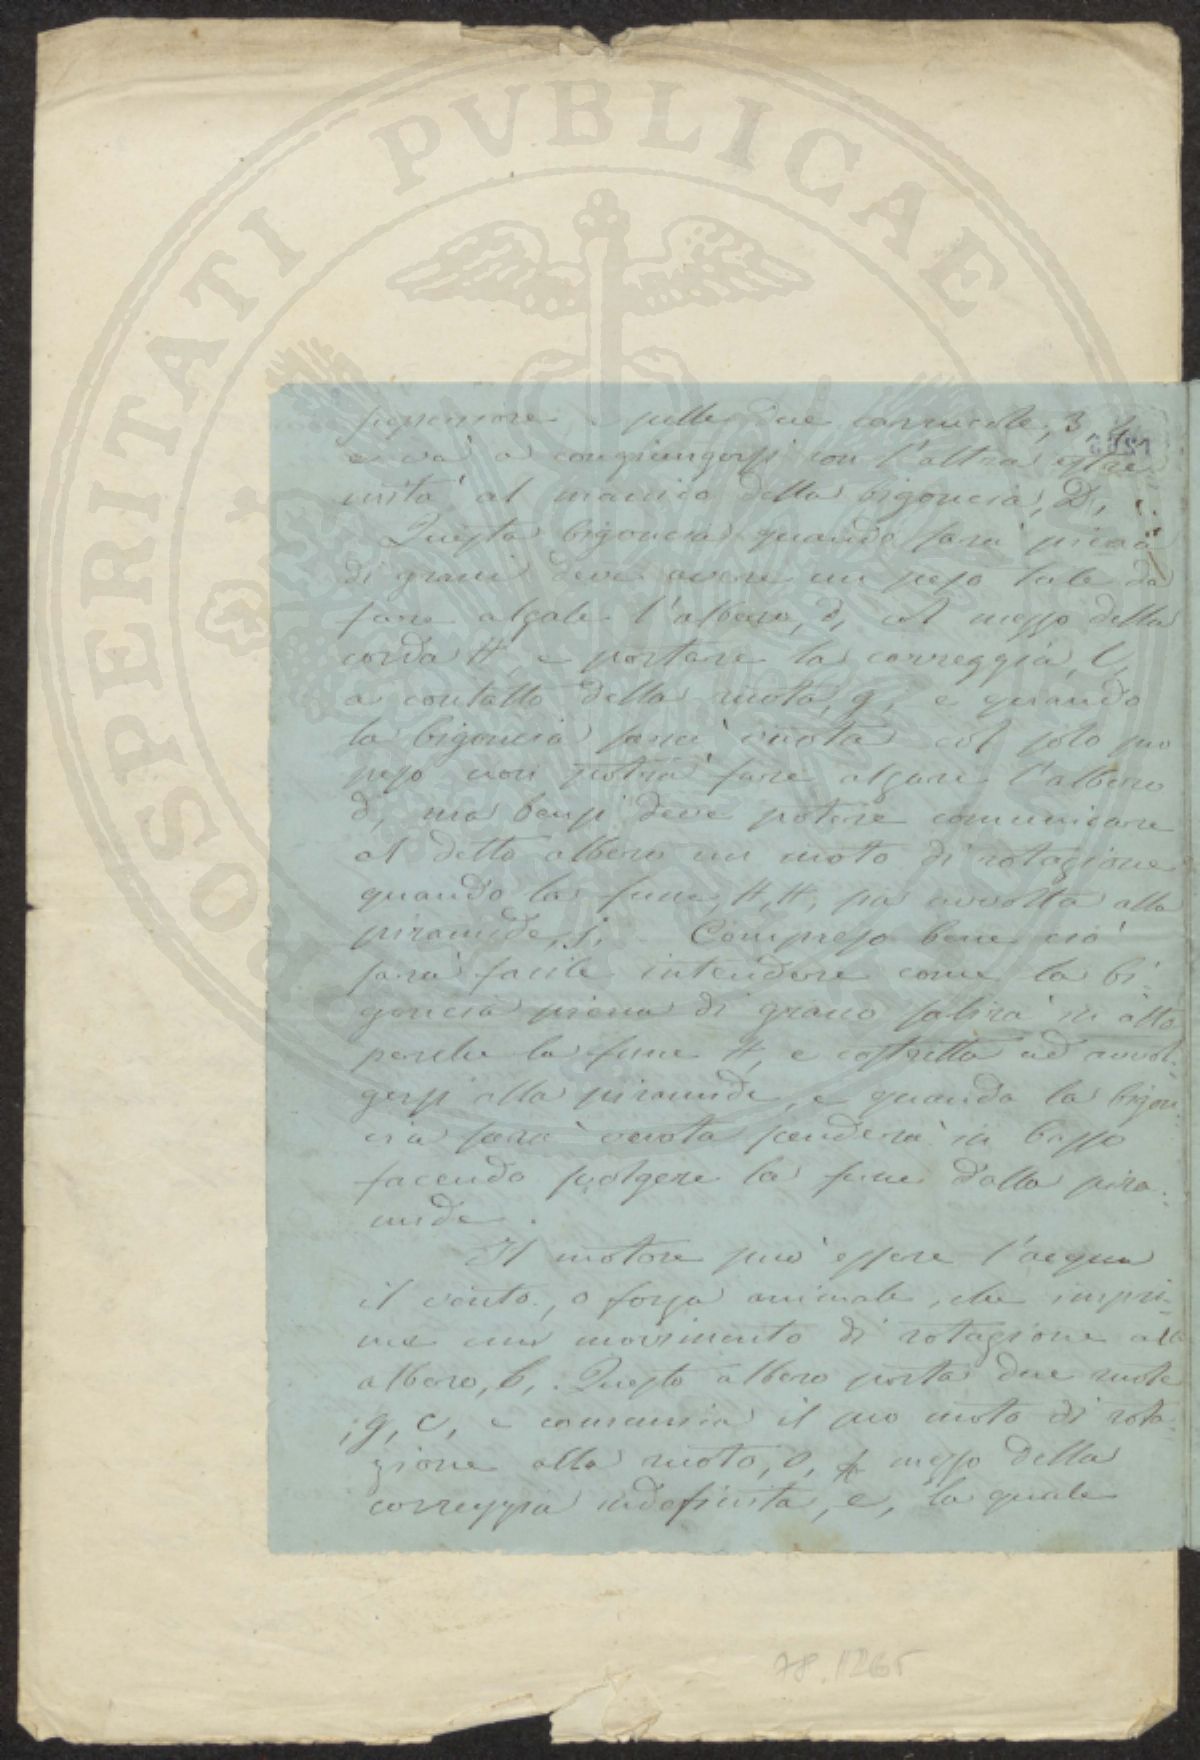 PROSPERITATI PUBLICAE
superiore sulle due carrucole, 3, 4,
e va' a congiungersi con l'altra estre
mita' al manico della bigoncia, D,
Questa bigoncia quando sara' piena
di grani deve avere un peso tale da
fare alzare l'albero, d, col mezzo della
corda H, e portare la correggia, l,
a contatto della ruota, g, e quando
la bigoncia sara' vuota col solo suo
peso non potra' fare alzare l'albero
d, ma bensi deve potere comunicare
al detto albero un moto di rotazione
quando la fune, H, H, sia avvolta alla
piramide, j, Compreso bene cio'
sara' facile intendere come la bi-
goncia piena di grano salira' in alto
perche la fune H, e costretta ad avvol-
gersi alla piramide, e quando la bigon-
cia sara' vuota scendera' in basso
facendo svolgere la fune dalla pira-
mide.
Il motore puo' essere l'acqua
il vento, o forza animale, che impri-
me un movimento di rotazione all
albero, b, . Questo albero porta due ruote
, g, c, e comunica il suo moto di rota-
zione alla ruota, o, mezzo della
correggia indefinita, e, la quale
78.1265